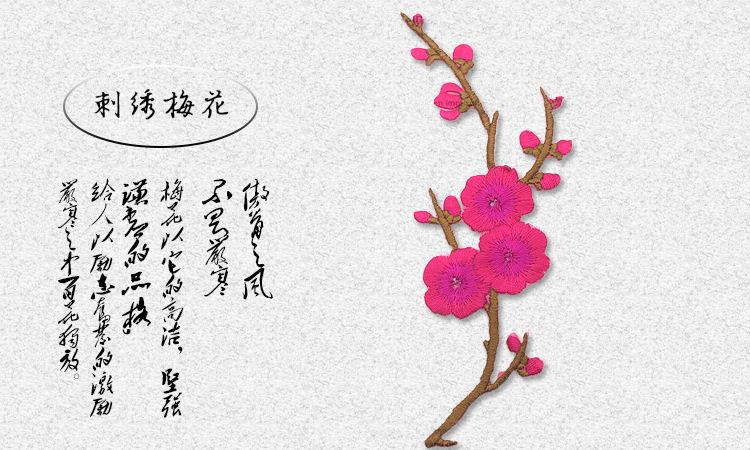 刺绣梅花
傲首之风
不畏嚴寒
梅花以它的高洁，坚强
谦虚的品格
给人以励志奮發的激励
嚴寒之中百花獨放。